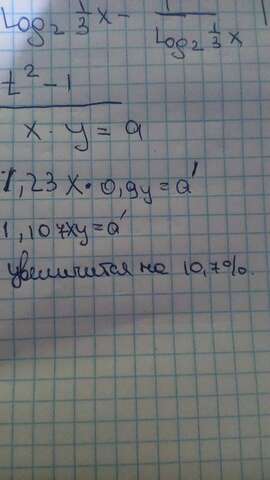 Log₂ 1/3 x - 1/(Log₂ 1/3 x)
t² - 1
x · y = a
1,23x · 0,9y = a'
1,107xy = a'
увеличится на 10,7%.